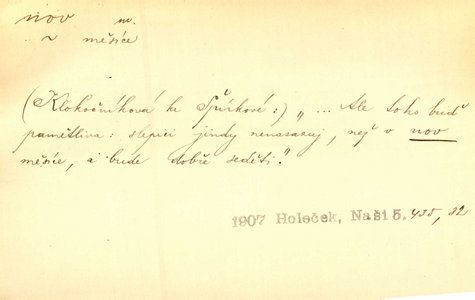 nov m.
~ měsíce
(Klokočníková ke Špírkové:) „ ... Ale toho buď
pamětliva: slepici jindy nenasazuj, nej v nov
měsíce, a bude dobře seděti."
1907 Holeček, Naši 5. 435, 32